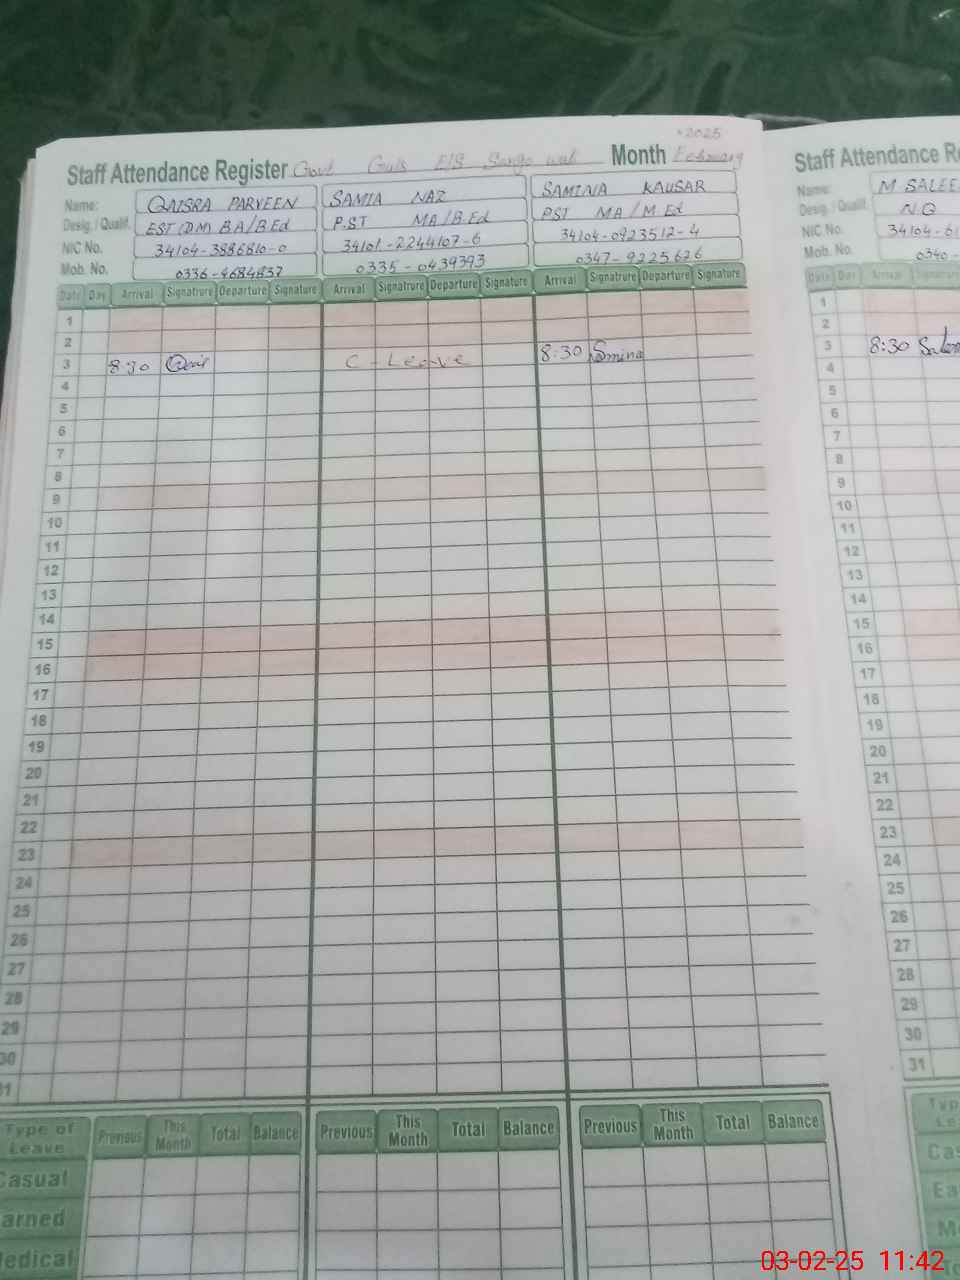 2025
Staff Attendance Register Govt Girls E/S Sango wali Month February
Name: QAISRA PARVEEN SAMIA NAZ SAMINA KAUSAR
Desig. / Qualif. EST (DM) BA/B.Ed P.ST MA/B.Ed PST MA/M Ed
NIC No. 34104-3886810-0 34101-2244107-6 34104-0923512-4
Mob. No. 0336-4684837 0335-0439393 0347-9225626
Date Day Arrival Signatrure Departure Signature Arrival Signatrure Departure Signature Arrival Signatrure Departure Signature
1
2
3 8:30 Qair C-Leave 8:30 Smina
4
5
6
7
8
9
10
11
12
13
14
15
16
17
18
19
20
21
22
23
24
25
26
27
28
29
30
31
Type of Leave Previous This Month Total Balance Previous This Month Total Balance Previous This Month Total Balance
Casual
Earned
Medical
Staff Attendance
Name: M SALEE
Desig. / Qualif. N.Q
NIC No. 34104-61
Mob. No. 0340-
Date Day Arrival
1
2
3 8:30
4
5
6
7
8
9
10
11
12
13
14
15
16
17
18
19
20
21
22
23
24
25
26
27
28
29
30
31
03-02-25 11:42